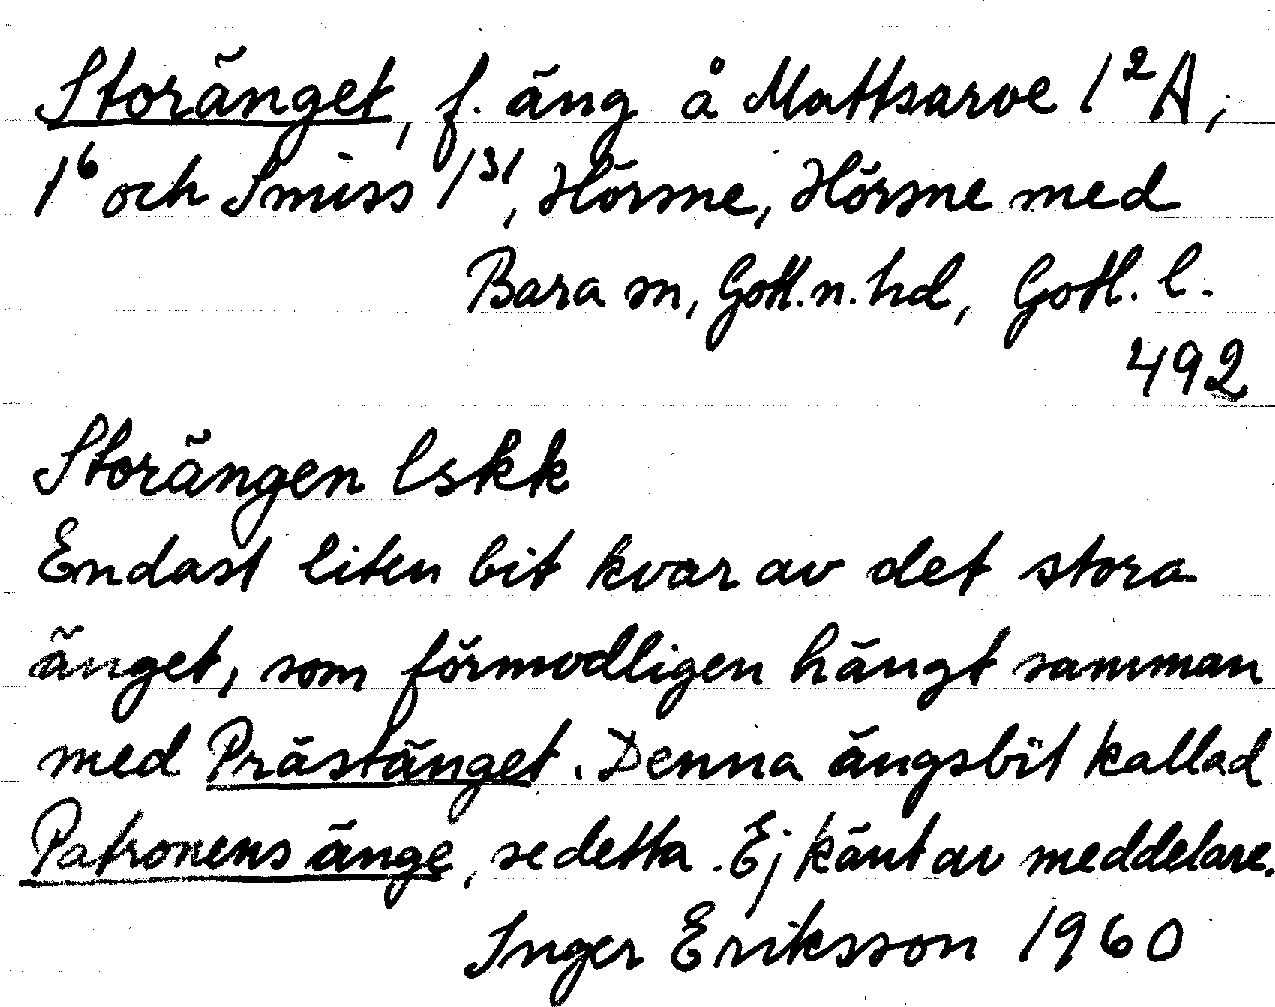 Storänget, f. äng å Mattsarve 1²A,
1⁶ och Smiss 1³¹, Hörsne, Hörsne med
Bara sn, Gotl.n.hd, Gotl. l.
492
Storängen lskk
Endast liten bit kvar av det stora
änget, som förmodligen hängt samman
med Prästänget. Denna ängsbit kallad
Patronens änge, se detta. Ej känt av meddelare.
Inger Eriksson 1960